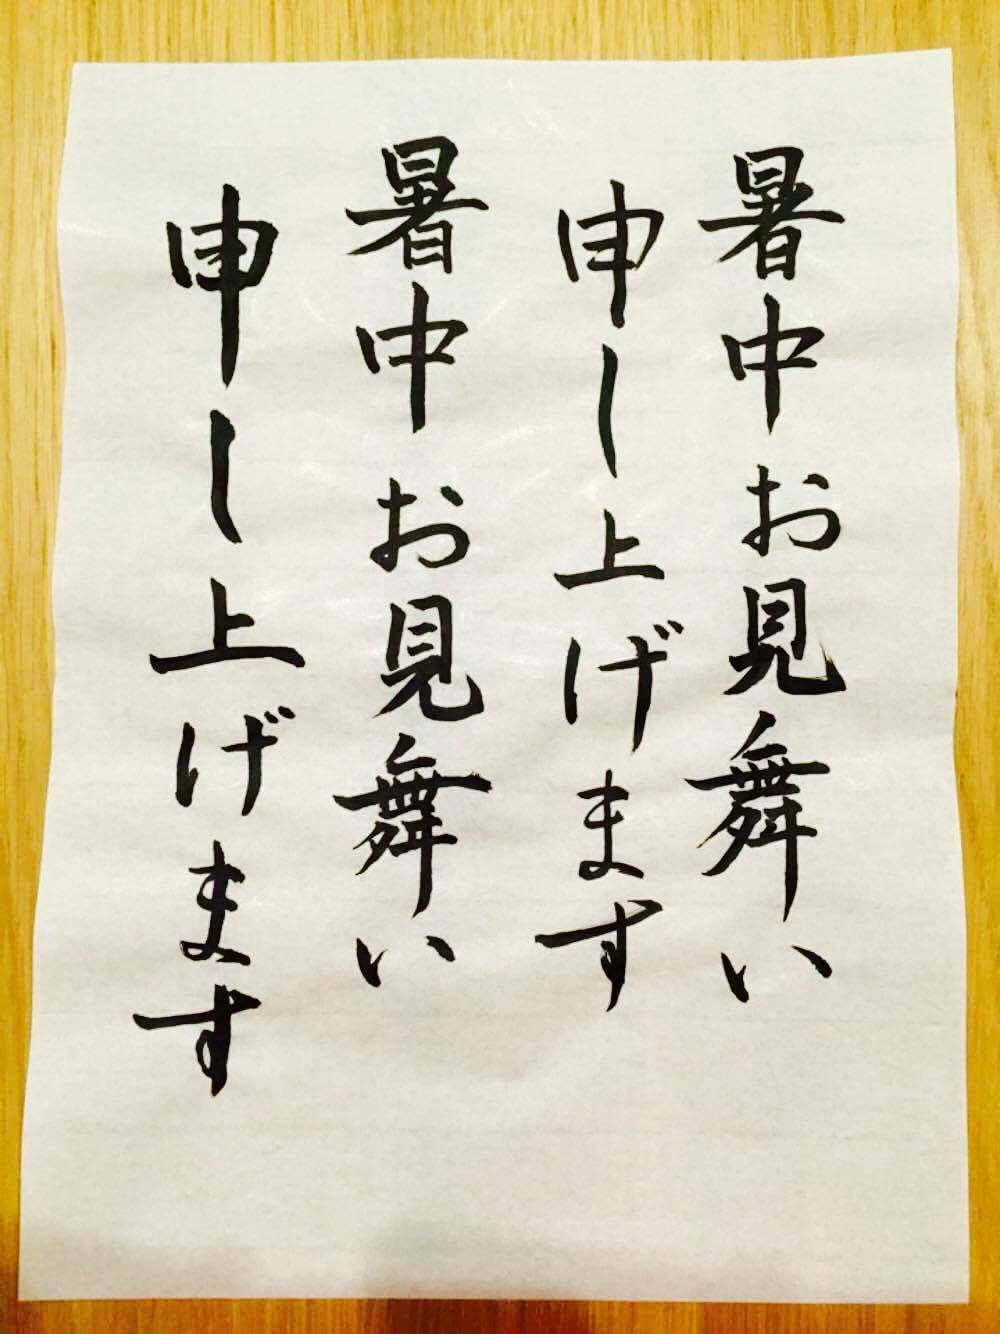 暑中お見舞い
申し上げます
暑中お見舞い
申し上げます